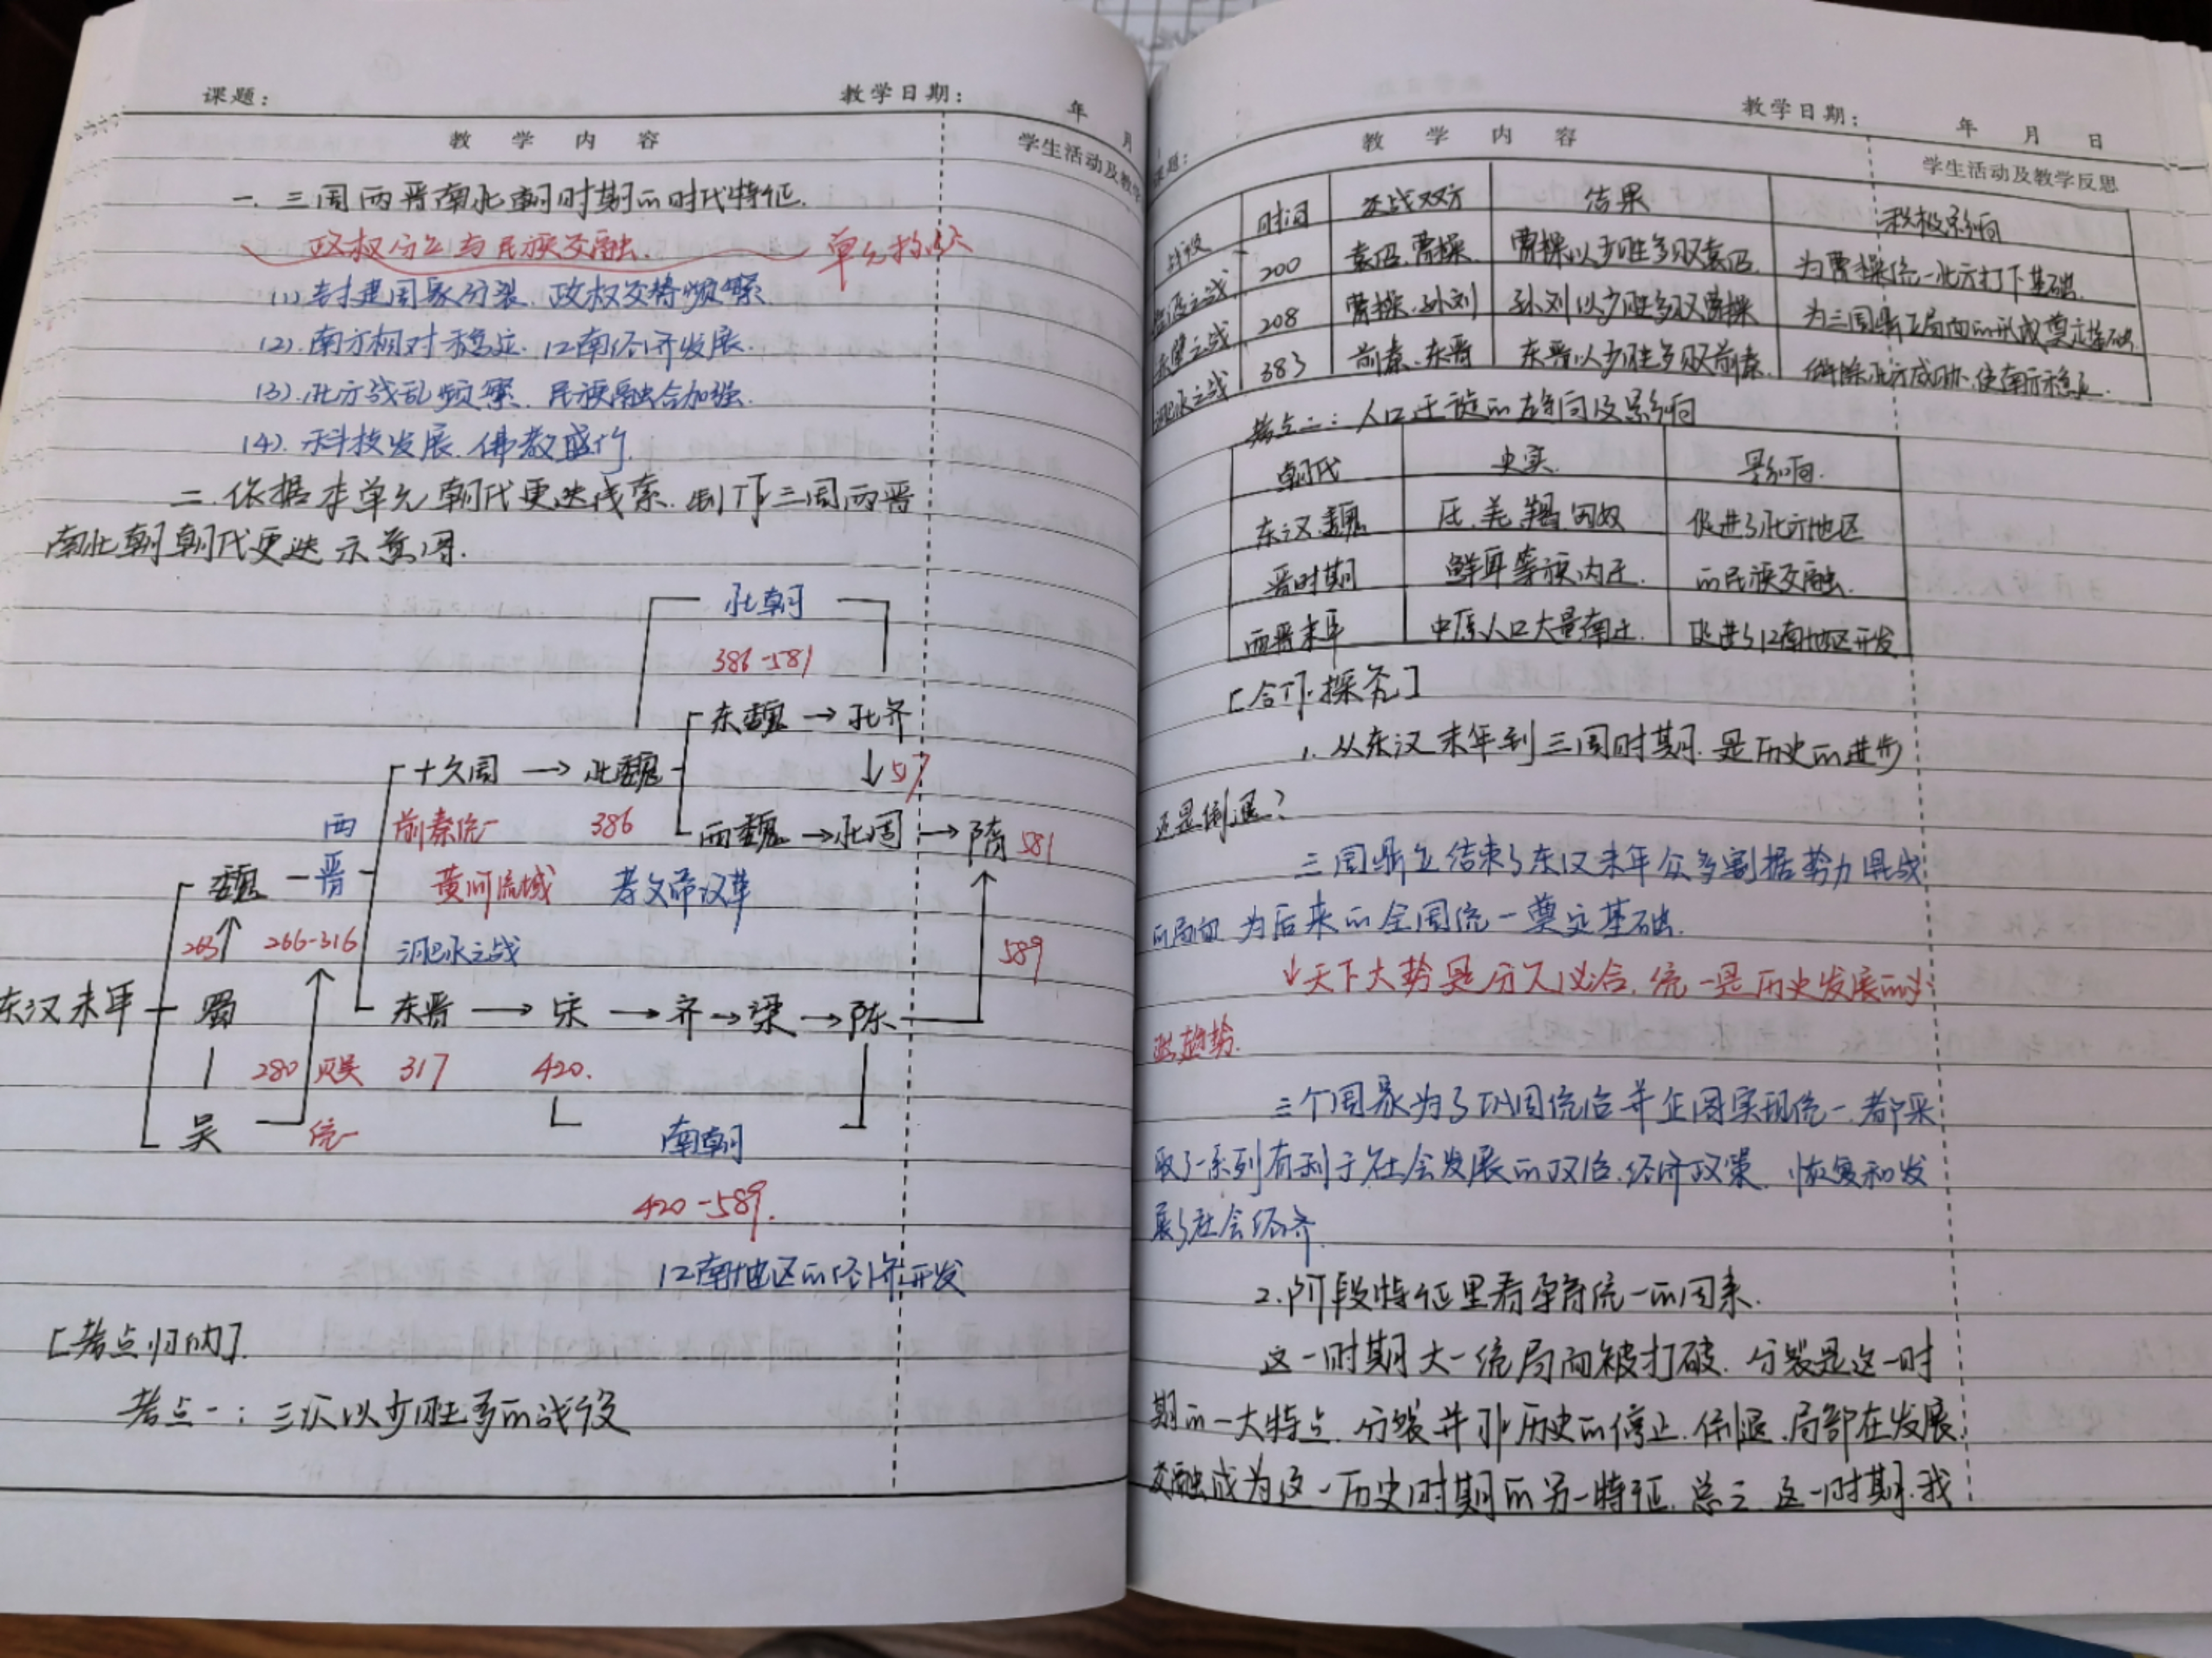 课题： 教学日期： 年 月
教 学 内 容 学生活动及教学
一. 三国两晋南北朝时期的时代特征.
政权分立与民族交融. 单元
(1) 封建国家分裂. 政权交替频繁
(2). 南方相对稳定. 江南经济发展.
(3). 北方战乱频繁. 民族融合加强.
(4). 科技发展. 佛教盛行.
二. 依据本单元朝代更迭线索. 制作三国两晋
南北朝朝代更迭示意图.
北朝
386-581
东魏 → 北齐
十六国 → 北魏 ↓ 577
西 前秦统一 386 西魏 → 北周 → 隋 581
魏 晋 黄河流域 孝文帝改革
263 ↑ 266-316 淝水之战 589
东汉末年 蜀 东晋 → 宋 → 齐 → 梁 → 陈
280 灭吴 317 420.
吴 统一 南朝
420-589.
江南地区的经济开发
[考点归纳].
考点一：三次以少胜多的战役
教学日期： 年 月 日
课题： 教 学 内 容 学生活动及教学反思
战役 时间 交战双方 结果 积极影响
官渡之战 200 袁绍. 曹操. 曹操以少胜多败袁绍. 为曹操统一北方打下基础.
赤壁之战 208 曹操. 孙刘 孙刘以少胜多败曹操 为三国鼎立局面的形成奠定基础.
淝水之战 383 前秦. 东晋 东晋以少胜多败前秦. 解除北方威胁. 使南方稳定.
考点二：人口迁徙的趋向及影响
朝代 史实. 影响.
东汉.魏 氐 羌 羯 匈奴 促进了北方地区
晋时期 鲜卑等族内迁. 的民族交融.
西晋末年 中原人口大量南迁. 促进了江南地区开发
[合作探究]
1. 从东汉末年到三国时期. 是历史的进步
还是倒退?
三国鼎立结束了东汉末年众多割据势力混战
的局面 为后来的全国统一奠定基础.
↓天下大势是分久必合. 统一是历史发展的必
然趋势.
三个国家为了巩固统治并企图实现统一. 都采
取了一系列有利于社会发展的政治. 经济政策. 恢复和发
展了社会经济.
2. 阶段特征里看孕育统一的因素.
这一时期大一统局面被打破. 分裂是这一时
期的一大特点. 分裂并非历史的停止. 倒退. 局部在发展.
交融成为这一历史时期的另一特征. 总之. 这一时期. 我